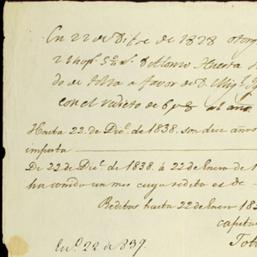 En 22 de Dife de 1828 otorg
2 hyp. Alonso Huerta
do de a favor de D. Mig.l
con el redito de 6 p8 al año
Hasta 22. de Dic.e de 1838. son diez años
importa
De 22 de Dic.e de 1838. à 22 de Enero de 1
ha corrido un mes cuyo redito es de
Reditos hasta 22 de Enero 183
capital
Tot
En.o 22 de 839.